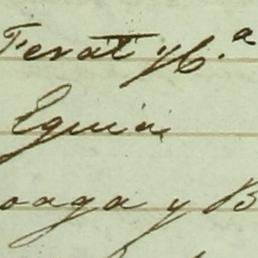 Ferat y C.ª
Eguia
oaga y B